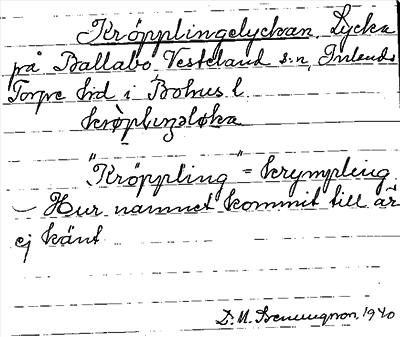 Kröpplingelyckan, Lycka
på Ballabo, Vesterland s:n, Inlands
Torpe hd i Bohus l.
krøplıŋəløka
"Kröppling" = krympling
– Hur namnet kommit till är
ej känt
D. M. 1940